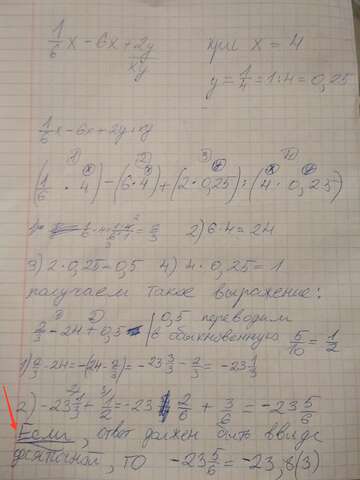 1/6 x - 6x + 2y/xy при x = 4
y = 1/4 = 1:4 = 0,25
1/6 x - 6x + 2y : xy
1) 2) 3) 4)
(1/6 · 4) - (6 · 4) + (2 · 0,25) : (4 · 0,25)
1) 1/6 · 4 = 2/3 2) 6 · 4 = 24
3) 2 · 0,25 - 0,5 4) 4 · 0,25 = 1
получаем такое выражение:
2/3 - 24 + 0,5 0,5 переводим
в обыкновенную 5/10 = 1/2
1) 2/3 - 24 = -(24 - 2/3) = -23 3/3 - 2/3 = -23 1/3
2) -23 1/3 + 1/2 = -23 2/6 + 3/6 = -23 5/6
Если, ответ должен быть ввиде
десятичной, то -23 5/6 = -23,8(3)